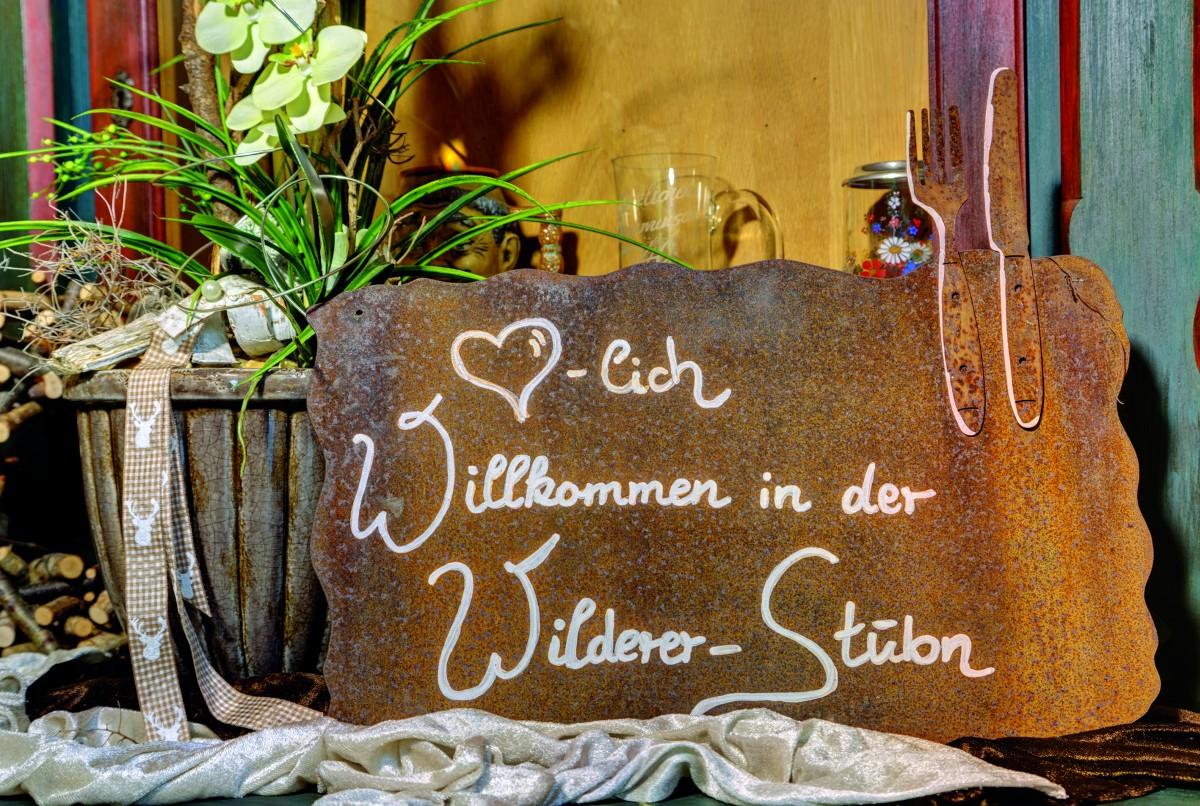 ♡-lich
Willkommen in der
Wilderer-Stūbn